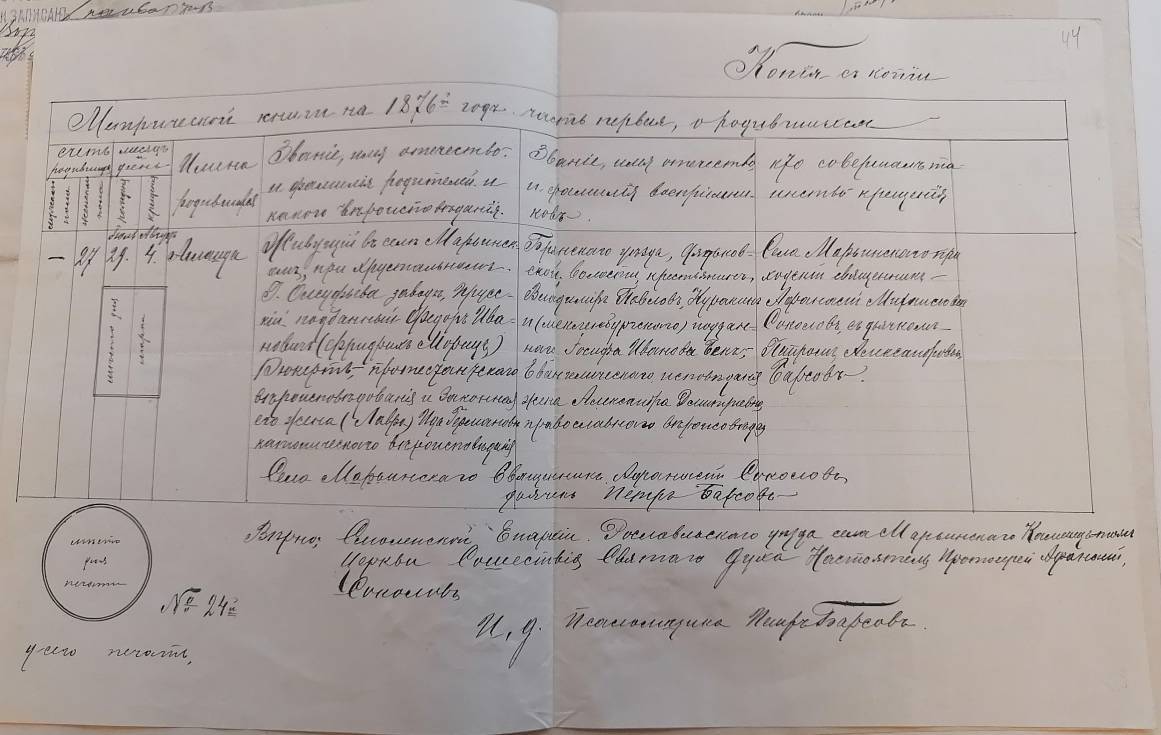 К ЗАПИСАЮ
44
Копія съ копіи
Метрической книги на 1876й годъ часть первая, о родившихся
счетъ родившихъ
мужеска пола
женскаго пола
месяцъ день
рожденія
крещенія
Имена родившихся
Званіе, имя отечество.
и фамилія родителей и
какого вѣроисповѣданія.
Званіе, имя отечество,
и фамилія воспріемни-
ковъ.
кто совершалъ та-
инство крещенія
—
27
Іюль 29.
Августъ 4.
место для марки
Живущій въ селѣ Марьинск-
омъ, при хрустальномъ.
Г. Олсуфьева заводѣ, Прусс-
кій подданный Федоръ Ива-
новичъ (Фридрихъ Морицъ)
протестантскаго
вѣроисповѣдованія и законная
его жена (Лавра) Ида Германовн
католического вѣроисповѣданія
Брянскаго уѣзда, Дятьков-
ской волости, крестьянинъ,
Владиміръ Павловъ, Куракинъ
и (мекленбургского) поддан-
наго Іосифа Иванова Бекъ,
Евангелическаго исповѣданія
жена Александра Дмитріевна
православнаго вѣроисовѣда
Села Марьинскаго при
ходскій священникъ —
Афанасій
Соколовъ съ дьячкомъ —
Петромъ Александровъ
Барсовъ.
Села Марьинскаго Священникъ Афанасій Соколовъ
дьячекъ Петръ Барсовъ
место для печати
Вѣрно: Смоленской Епархіи. Рославльскаго уѣзда села Марьинскаго
церкви Сошествія Святаго Духа Настоятель Протоіерей Афанасій,
Соколовъ
№ 24й
И, д. Псаломщика Петръ Барсовъ.
у сего печать,